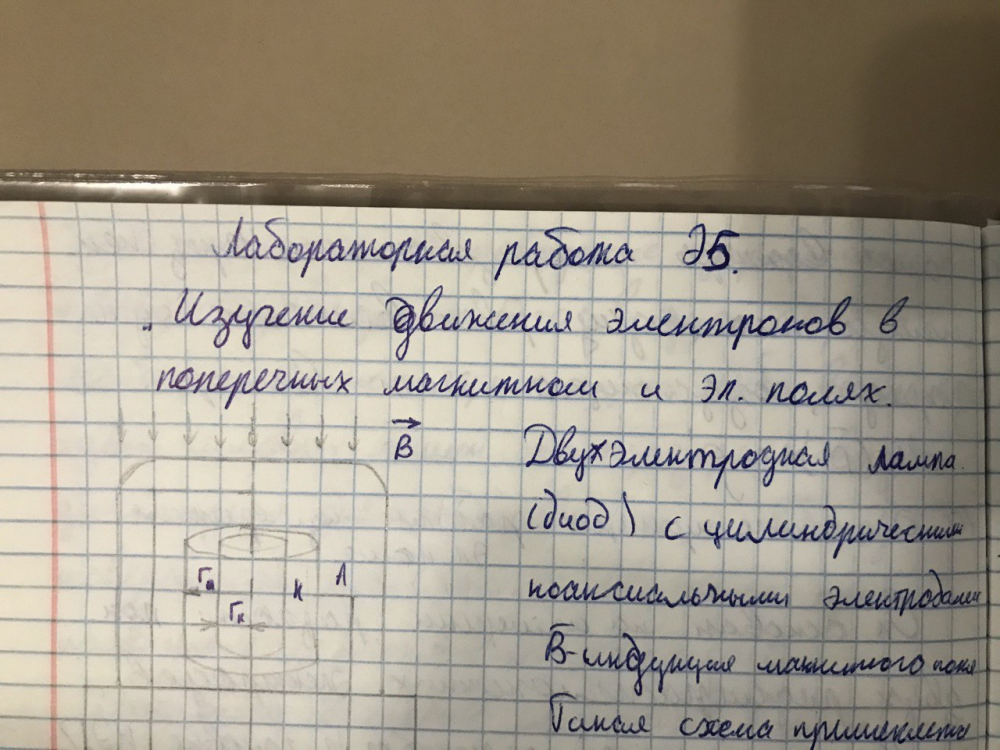 Лабораторная работа Э5.
Изучение движения электронов в
поперечных магнитном и эл. полях.
B
Двухэлектродная лампа
(диод) с цилиндрическими
коаксиальными электродами
rа
К
А
rк
B-индукция магнитного поля
Такая схема применяется